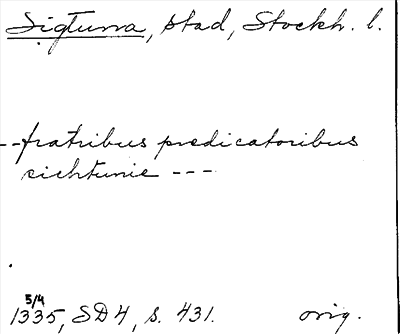 Sigtuna, stad, Stockh. l.
--fratribus predicatoribus
sichtunie ---
5/4
1335, SD4, s. 431. orig.